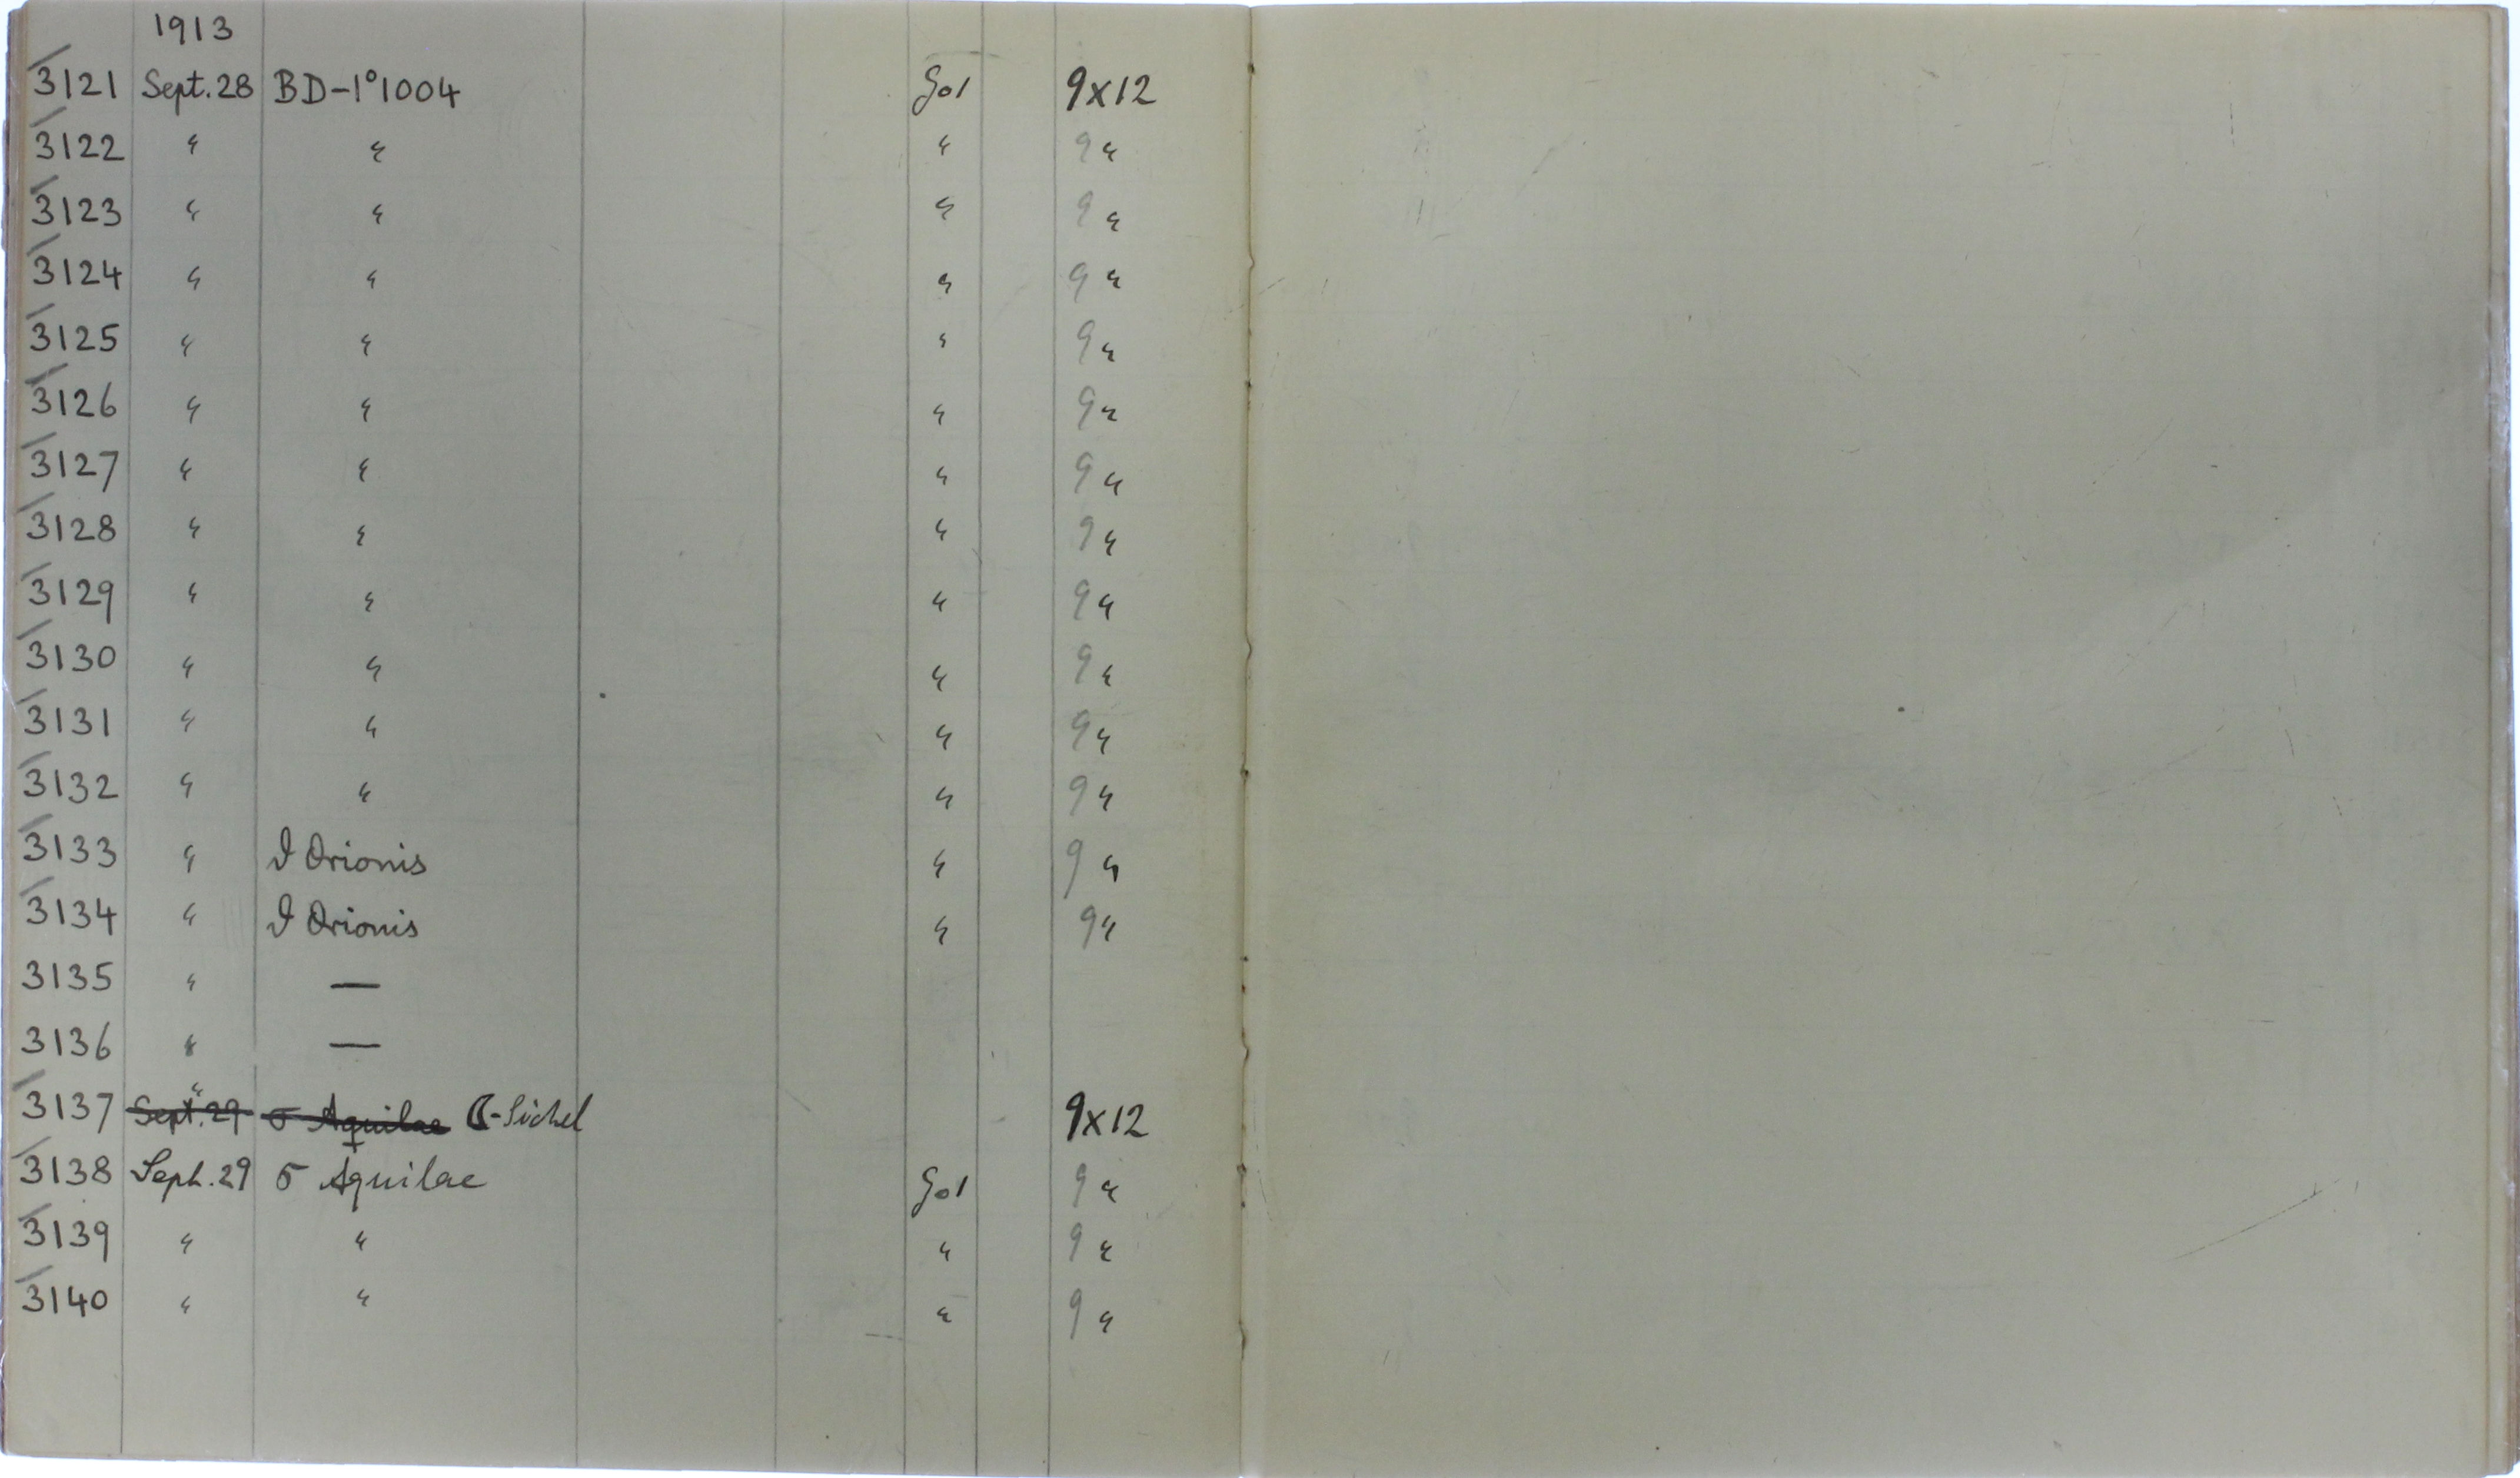 1913
3121 Sept. 28 BD-1°1004 Gol 9x12
3122 " " " 9 "
3123 " " " 9 "
3124 " " " 9 "
3125 " " " 9 "
3126 " " " 9 "
3127 " " " 9 "
3128 " " " 9 "
3129 " " " 9 "
3130 " " " 9 "
3131 " " " 9 "
3132 " " " 9 "
3133 " ϑ Orionis " 9 "
3134 " ϑ Orionis " 9 "
3135 " —
3136 " —
3137 " Sept. 29 σ Aquilae ☾-Sichel 9x12
3138 Sept. 29 σ Aquilae Gol 9 "
3139 " " " 9 "
3140 " " " 9 "